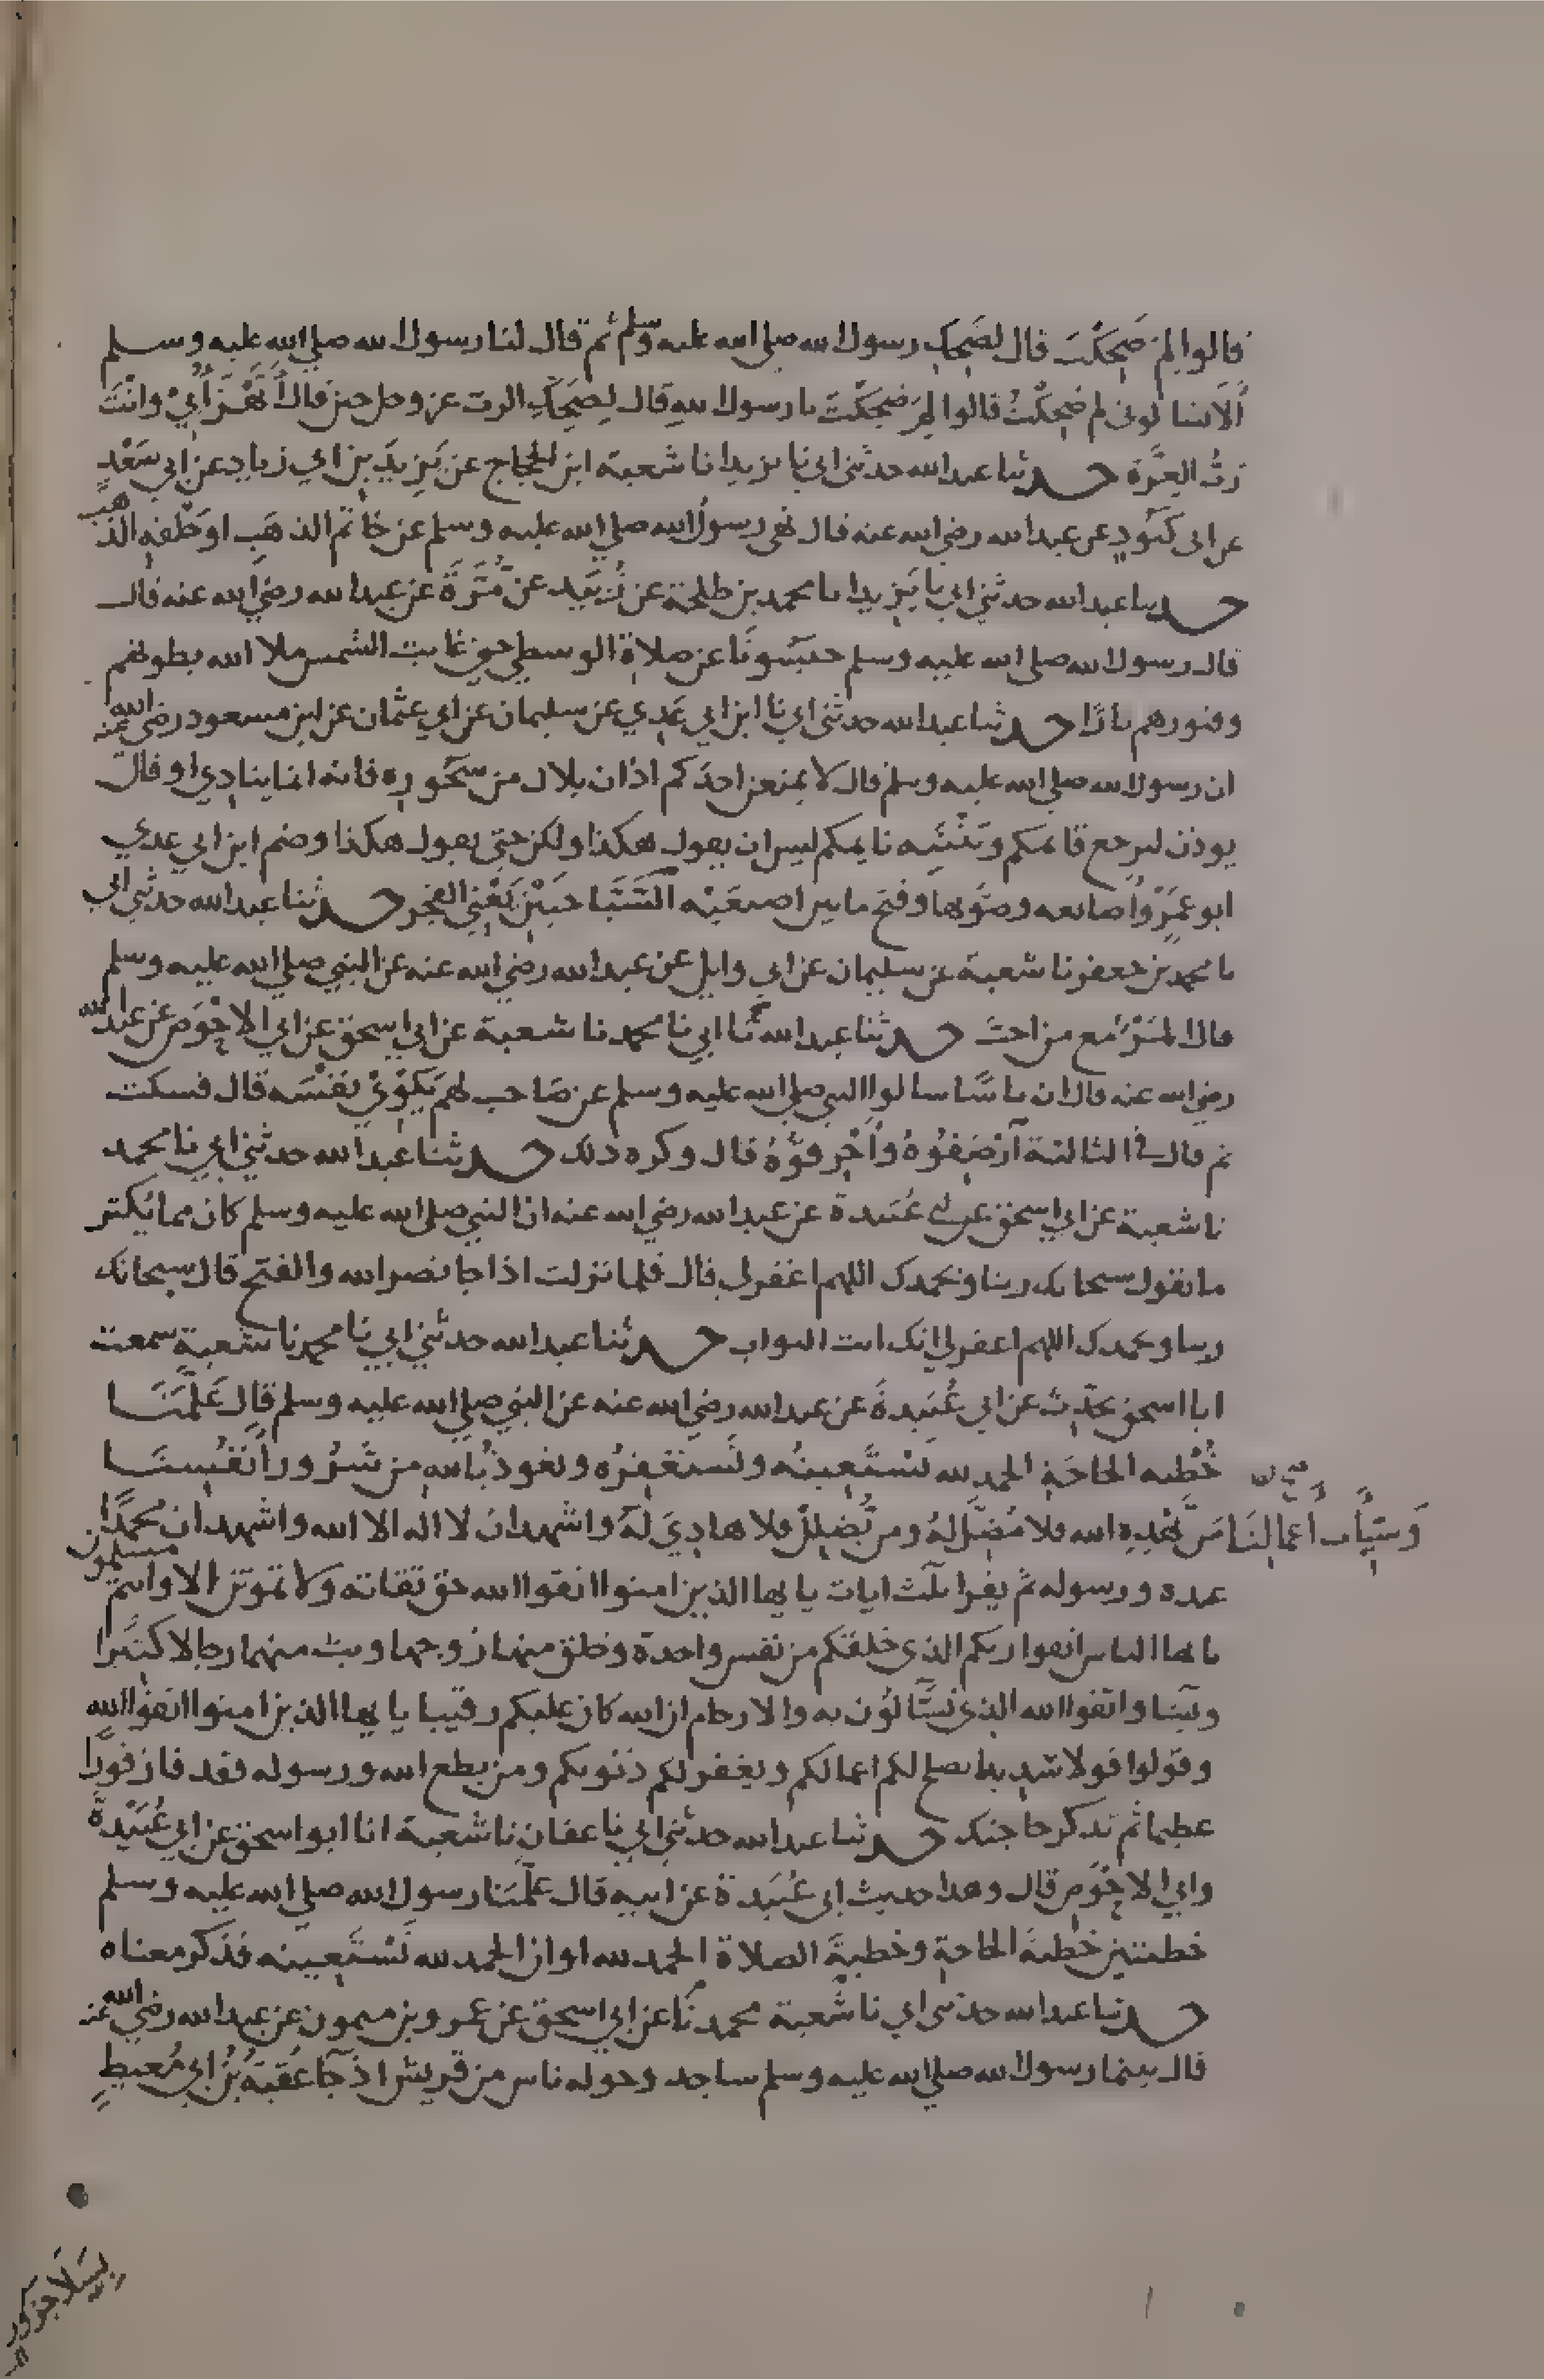 قالوا لم ضحكت قال لضحك رسول الله صلى الله عليه وسلم ثم قال لنا رسول الله صلى الله عليه وسلم
ألا تسألونى لم ضحكت قالوا لم ضحكت يا رسول الله قال لضحك الرب عز وجل حين قال أتهزأ بي وأنت
رب العزة حدثنا عبد الله حدثني ابي نا يزيد انا شعبة ابن الحجاج عن يزيد بن ابي زياد عن ابي سعد
عن ابى كنود عن عبد الله رضي الله عنه قال نهى رسول الله صلى الله عليه وسلم عن خاتم الذهب او حلقه الذهب
حدثنا عبد الله حدثني ابي نا يزيد انا محمد بن طلحة عن زبيد عن مرة عن عبد الله رضي الله عنه قال
قال رسول الله صلى الله عليه وسلم حبسونا عن صلاة الوسطى حتى غابت الشمس ملا الله بطونهم
وقبورهم نارا حدثنا عبد الله حدثني ابي نا ابن ابي عدي عن سليمان عن ابي عثمان عن ابن مسعود رضي الله عنه
ان رسول الله صلى الله عليه وسلم قال لا يمنعن احدكم اذان بلال من سحوره فانه انما ينادي او قال
يوذن ليرجع قائمكم وينبه نايمكم ليس ان يقول هكذا ولكن حتى يقول هكذا وضم ابن ابي عدي
ابو عمرو أصابعه وصوبها وفتح ما بين اصبعيه السبابتين يعني الفجر حدثنا عبد الله حدثني ابي
نا محمد بن جعفر نا شعبة عن سليمان عن ابي وايل عن عبد الله رضي الله عنه عن النبي صلى الله عليه وسلم
قال المرء مع من احب حدثنا عبد الله ثنا ابي نا محمد نا شعبة عن ابي اسحق عن ابي الاحوص عن عبد الله
رضي الله عنه قال ان ناسا سالوا النبي صلى الله عليه وسلم عن صاحب لهم يكوي نفسه قال فسكت
ثم قال في الثالثة أرضفوه وأحرقوه قال وكره ذلك حدثنا عبد الله حدثني ابي نا محمد
نا شعبة عن ابي اسحق عن ابي عبيدة عن عبد الله رضي الله عنه ان النبي صلى الله عليه وسلم كان مما يكثر
ما يقول سبحانك ربنا وبحمدك اللهم اغفر لي قال فلما نزلت اذا جا نصر الله والفتح قال سبحانك
ربنا وبحمدك اللهم اغفر لي انك انت التواب حدثنا عبد الله حدثني ابي نا محمد نا شعبة سمعت
ابا اسحق يحدث عن ابي عبيدة عن عبد الله رضي الله عنه عن النبي صلى الله عليه وسلم قال علمنا
خطبه الحاجة الحمد لله نستعينه ونستغفره ونعوذ بالله من شرور أنفسنا
وسيئات أعمالنا من يهده الله فلا مضل له ومن يضلل فلا هادي له واشهد ان لا اله الا الله واشهد ان محمدا
عبده ورسوله ثم يقرا ثلث ايات يا يها الذين امنوا اتقوا الله حق تقاته ولا تموتن الا وانتم مسلمون
يا يها الناس اتقوا ربكم الذي خلقكم من نفس واحدة وخلق منها زوجها وبث منهما رجالا كثيرا
ونسا واتقوا الله الذي تسالون به والارحام ان الله كان عليكم رقيبا يا يها الذين امنوا اتقوا الله
وقولوا قولا شديدا يصلح لكم اعمالكم ويغفر لكم ذنوبكم ومن يطع الله ورسوله فقد فاز فوزا
عظيما ثم تذكر حاجتك حدثنا عبد الله حدثني ابي نا عفان نا شعبة انا ابو اسحق عن ابي عبيدة
وابي الاحوص قال وهذا حديث ابي عبيدة عن ابيه قال علمنا رسول الله صلى الله عليه وسلم
خطبتين خطبة الحاجة وخطبة الصلاة الحمد لله او ان الحمد لله نستعينه فذكر معناه
حدثنا عبد الله حدثني ابي نا شعبة محمد نا عن ابي اسحق عن عمرو بن ميمون عن عبد الله رضي الله عنه
قال بينما رسول الله صلى الله عليه وسلم ساجد وحوله ناس من قريش اذ جا عقبة بن ابي معيط
بسلا جزور